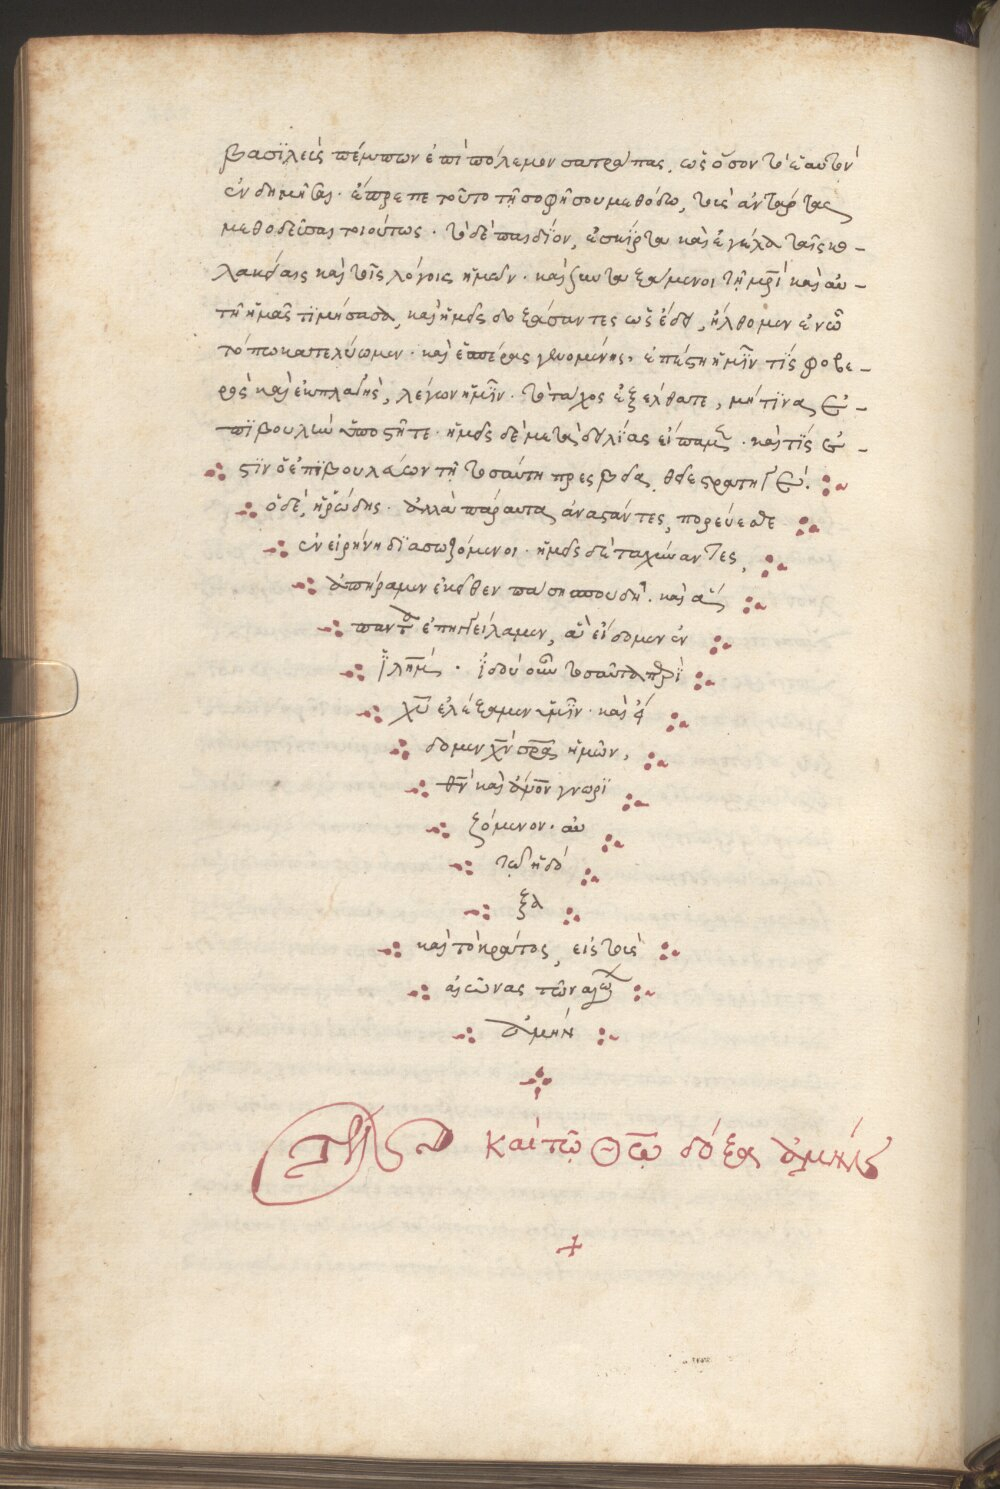 βασϊλεὶς πέμπων ἐπὶ πόλεμον σατράπας, ὡς ὅσον τὸ ἑαυτὸν
ἔπρεπε τοῦτο τῆ σοφῆ σου μεθόδω, τοὺς ἀντάρτας
μεθοδεῦσαι τοιούτως · τὸ δὲ παιδΐον, ἐσκίρτα καὶ ἐγέλα ταῖς κο-
λακείαις καὶ τοῖς λόγοις ἡμῶν · καὶ συνταξάμενοι τῆ μρ̅ὶ καὶ αυ-
τὴ ἡμᾶς τϊμήσασα, καὶ ἡμεῖς δοξάσαντες ὡς ἔδει, ἤλθομεν ἐν ὧ
τόπω κατελύωμεν · καὶ ἑσπέρας γενομένης, ἐπέστη ἡμῖν τὶς φοβε-
ρὸς καὶ ἐκπλαγὴς, λέγων ἡμῖν · τὸ τάχος ἐξέλθατε, μή τϊνα ἐ-
πϊβουλὴν ὑποστῆτε · ἡμεῖς δὲ μετὰ δειλίας εἴπαμεν · καὶ τίς ἐ-
στὶν ὁ ἐπϊβουλεύων τῆ τοσαύτη πρεσβεία, θεε στρατηγέ.
ὁ δὲ, ἡρώδης · ἀλλὰ πάραυτα ἀναστάντες, πορεύεσθε
ἐν εἰρήνη δϊασωζόμενοι · ἡμεῖς δὲ ταχύναντες,
ἀπήραμεν ἐκεῖθεν πάση σπουδῆ · καὶ
ἐπηγγείλαμεν, ἃ εἴδομεν ἐν
ϊ̅λη̅μ · ϊδοὺ οὖν τοσαῦτα περὶ
χυ̅ ἐλέξαμεν ὑμῖν · καὶ
δομεν χν̅ σρ̅α ἡμῶν,
θν̅ καὶ ἀνο̅ν γνωρϊ
ζόμενον · αυ
τῶ ἡ δό
ξα
καὶ τὸ κράτος, εἰς τοὺς
αἰῶνας τῶν αἰώ
ἀμήν
καὶ τῶ Θω̅ δόξα ἀμήν
+